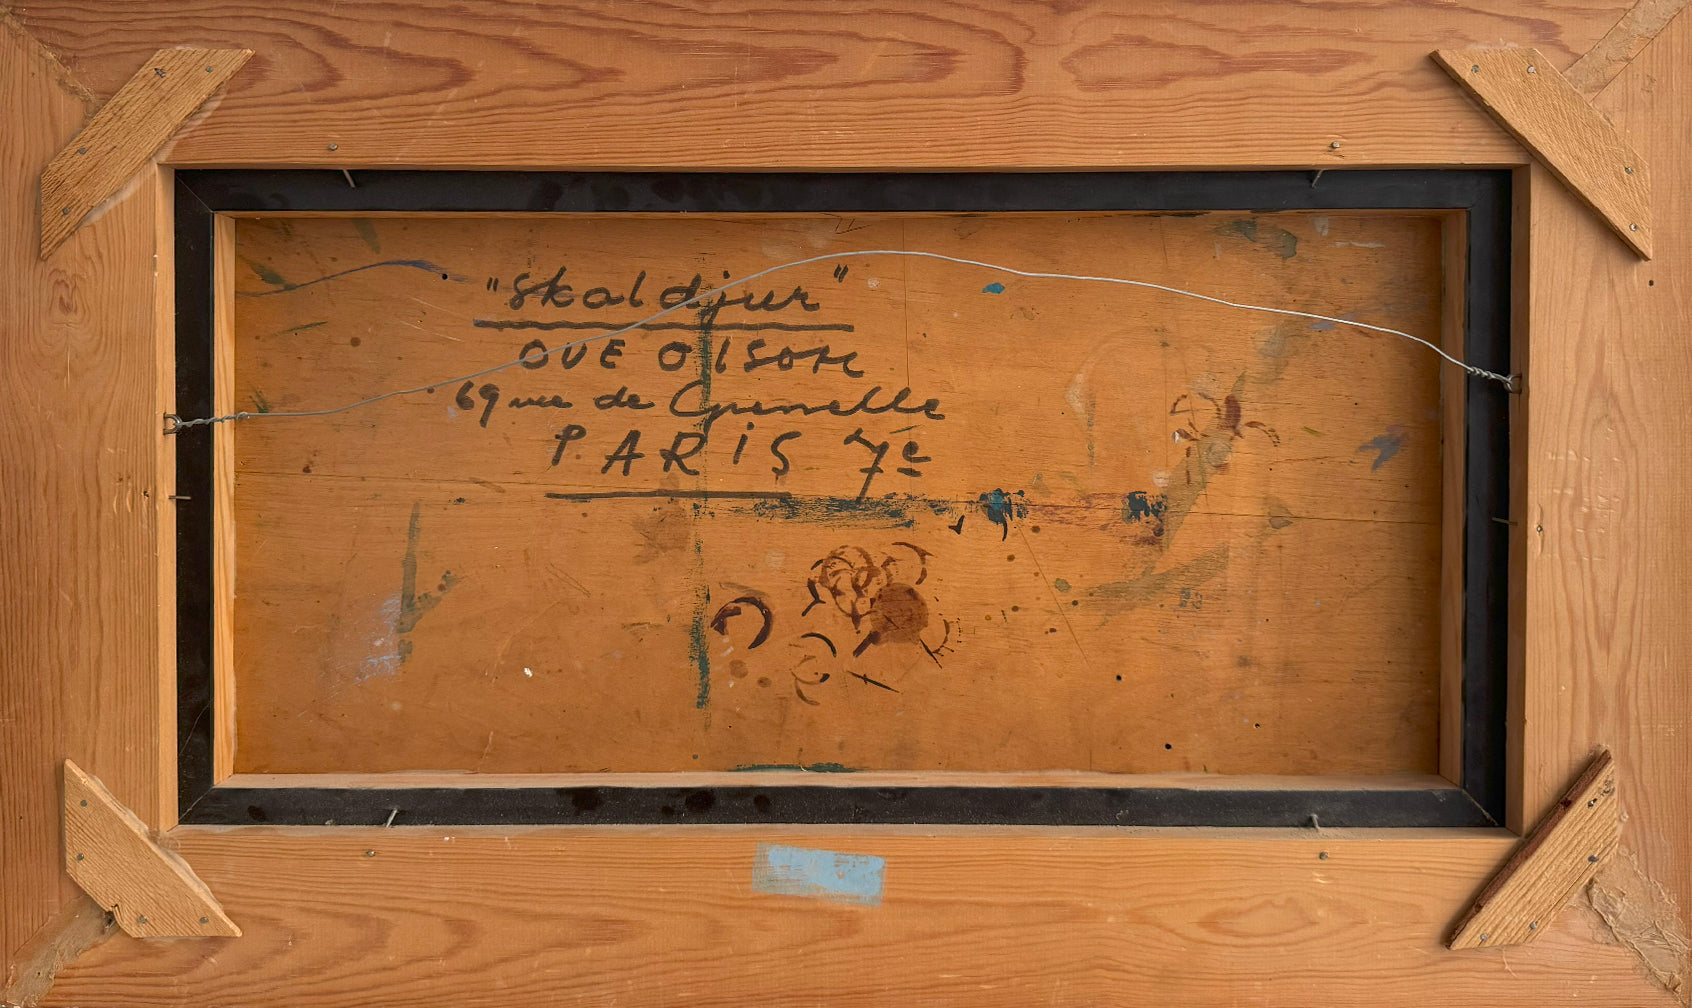 "Skaldjur"
OVE OlSON
69 rue de Grenelle
PARiS 7e